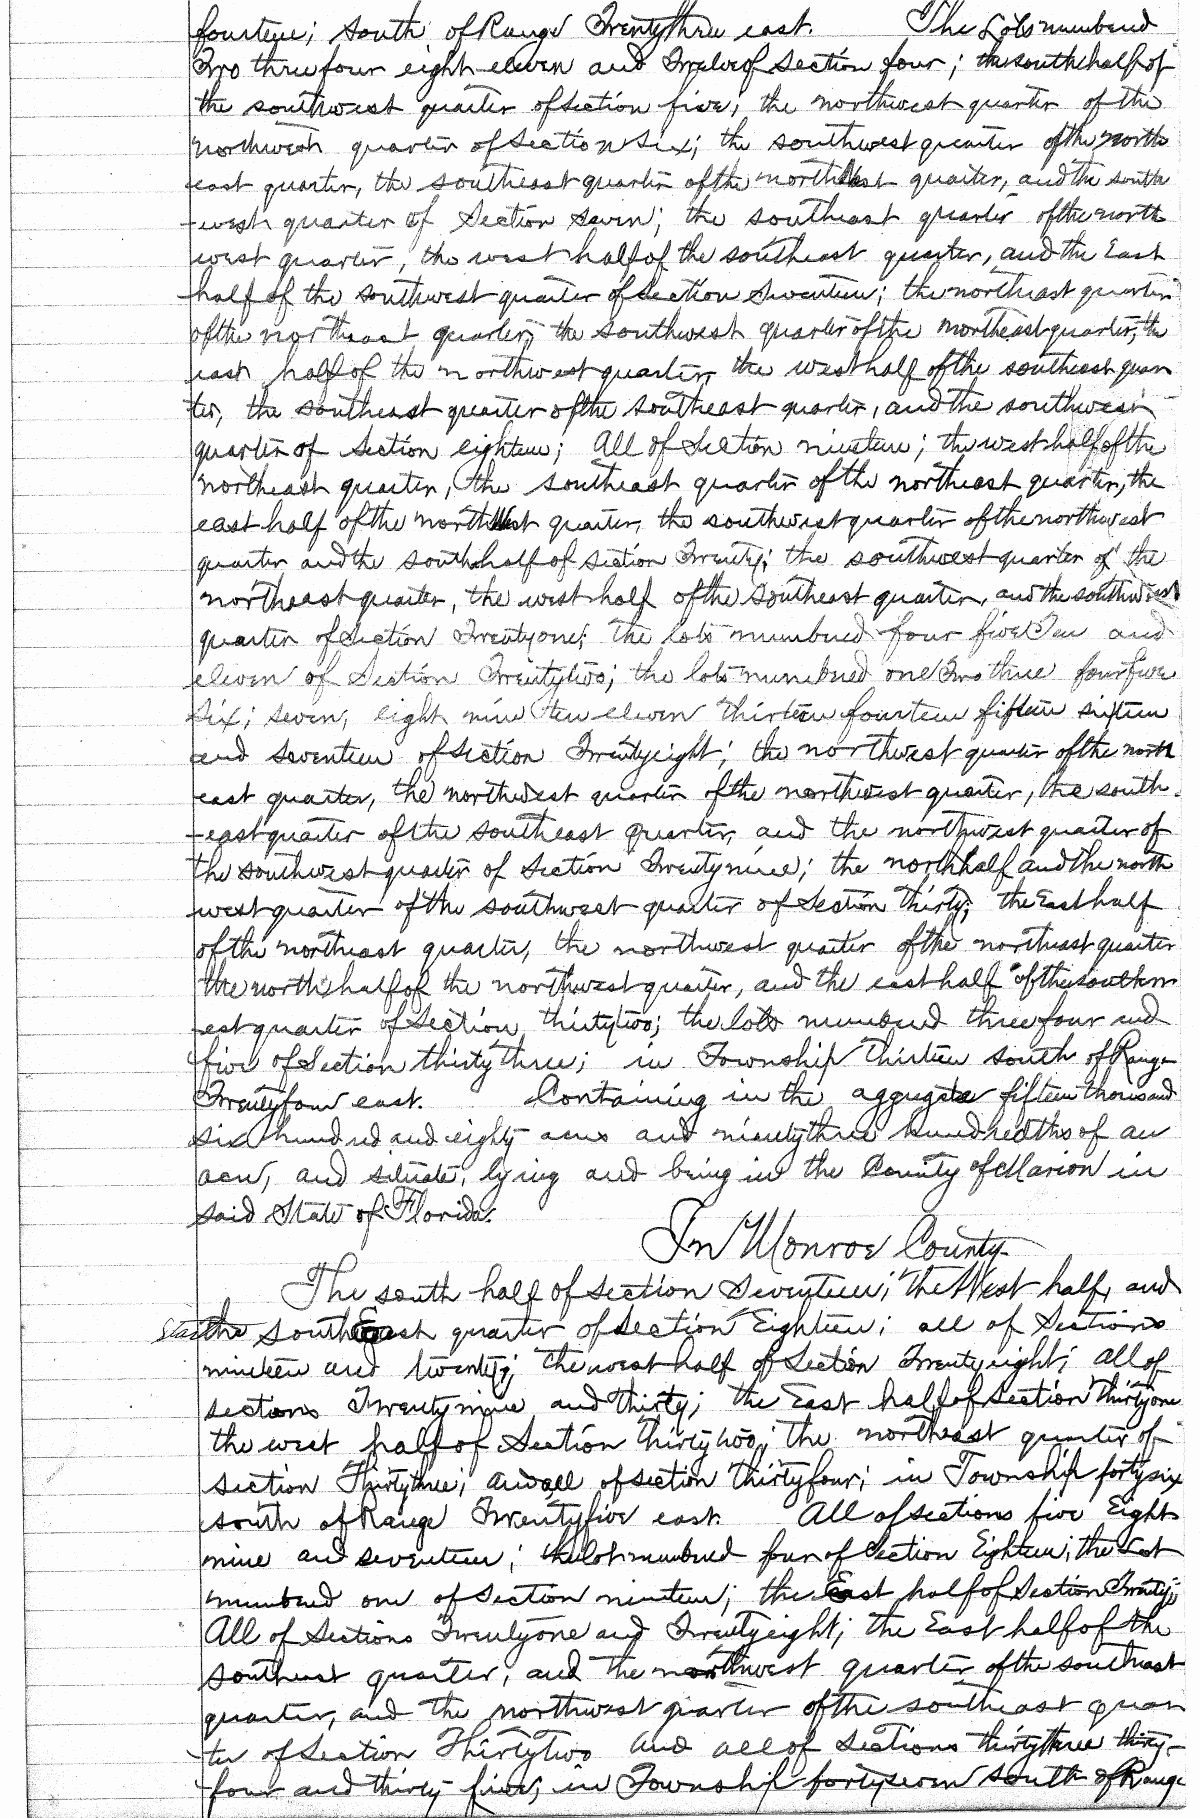 fourteen; South of Range Twenty three east. The Lots numbered
Two three four eight eleven and Twelve of Section four; the south half of
the southwest quarter of section five; the northwest quarter of the
northwest quarter of Section Six; the southwest quarter of the north
east quarter, the southeast quarter of the northwest quarter, and the south
-west quarter of Section Seven; the southeast quarter of the north
west quarter, the west half of the southeast quarter, and the East
half of the southwest quarter of Section Seventeen; the northeast quarter
of the northeast quarter, the southwest quarter of the northeast quarter, the
east half of the northwest quarter, the west half of the southeast quar
ter, the southeast quarter of the southeast quarter, and the southwest
quarter of Section eighteen; All of Section nineteen; the west half of the
northeast quarter, the southeast quarter of the northeast quarter, the
east half of the northwest quarter, the southwest quarter of the northwest
quarter and the south half of section Twenty; the southwest quarter of the
northeast quarter, the west half of the Southeast quarter, and the southwest
quarter of Section Twentyone; the lots numbered four five Ten and
eleven of Section Twentytwo; the lots numbered one Two three four five
Six; seven, eight nine ten eleven thirteen fourteen fifteen sixteen
and seventeen of Section Twentyeight; the northwest quarter of the north
east quarter, the northwest quarter of the northwest quarter, the south-
-east quarter of the southeast quarter, and the northwest quarter of
the southwest quarter of Section Twentynine; the north half and the north
west quarter of the southwest quarter of Section thirty; the East half
of the northeast quarter, the northwest quarter of the northeast quarter
the north half of the northwest quarter, and the east half of the southw
est quarter of Section thirtytwo; the lots numbered three four and
five of Section thirty three; in Township thirteen south of Range
Twentyfour east. Containing in the aggregate fifteen thousand
six hundred and eighty acres and ninetythree hundredths of an
acre, and situate, lying and being in the County of Marion in
said State of Florida.
In Monroe County
The south half of section Seventeen; the West half, and
the South East quarter of section Eighteen; all of Sections
nineteen and twenty; the west half of Section Twentyeight; all of
sections Twentynine and thirty; the East half of section thirtyone
the west half of Section thirtytwo; the northeast quarter of
section Thirtythree; and all of section thirtyfour; in Township fortysix
south of Range Twentyfive east. All of sections five Eight
nine and seventeen; the lot numbered four of Section Eighteen; the Lot
numbered one of section nineteen; the East half of Section Twenty;
All of Sections Twentyone and Twentyeight; the East half of the
southeast quarter, and the northwest quarter of the southeast
quarter, and the northwest quarter of the southeast quar
ter of Section Thirtytwo and all of Sections thirtythree thirty-
-four and thirty five; in Township fortyseven South of Range